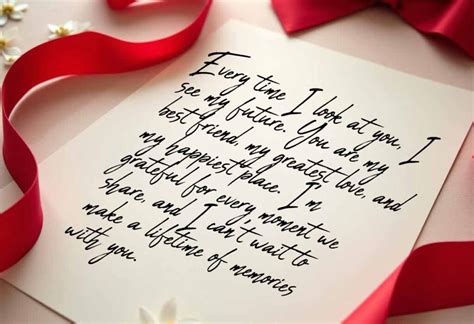 Every time I look at you, I
see my future. You are my
best friend, my greatest love, and
my happiest place. I'm
grateful for every moment we
share, and I can't wait to
make a lifetime of memories
with you.